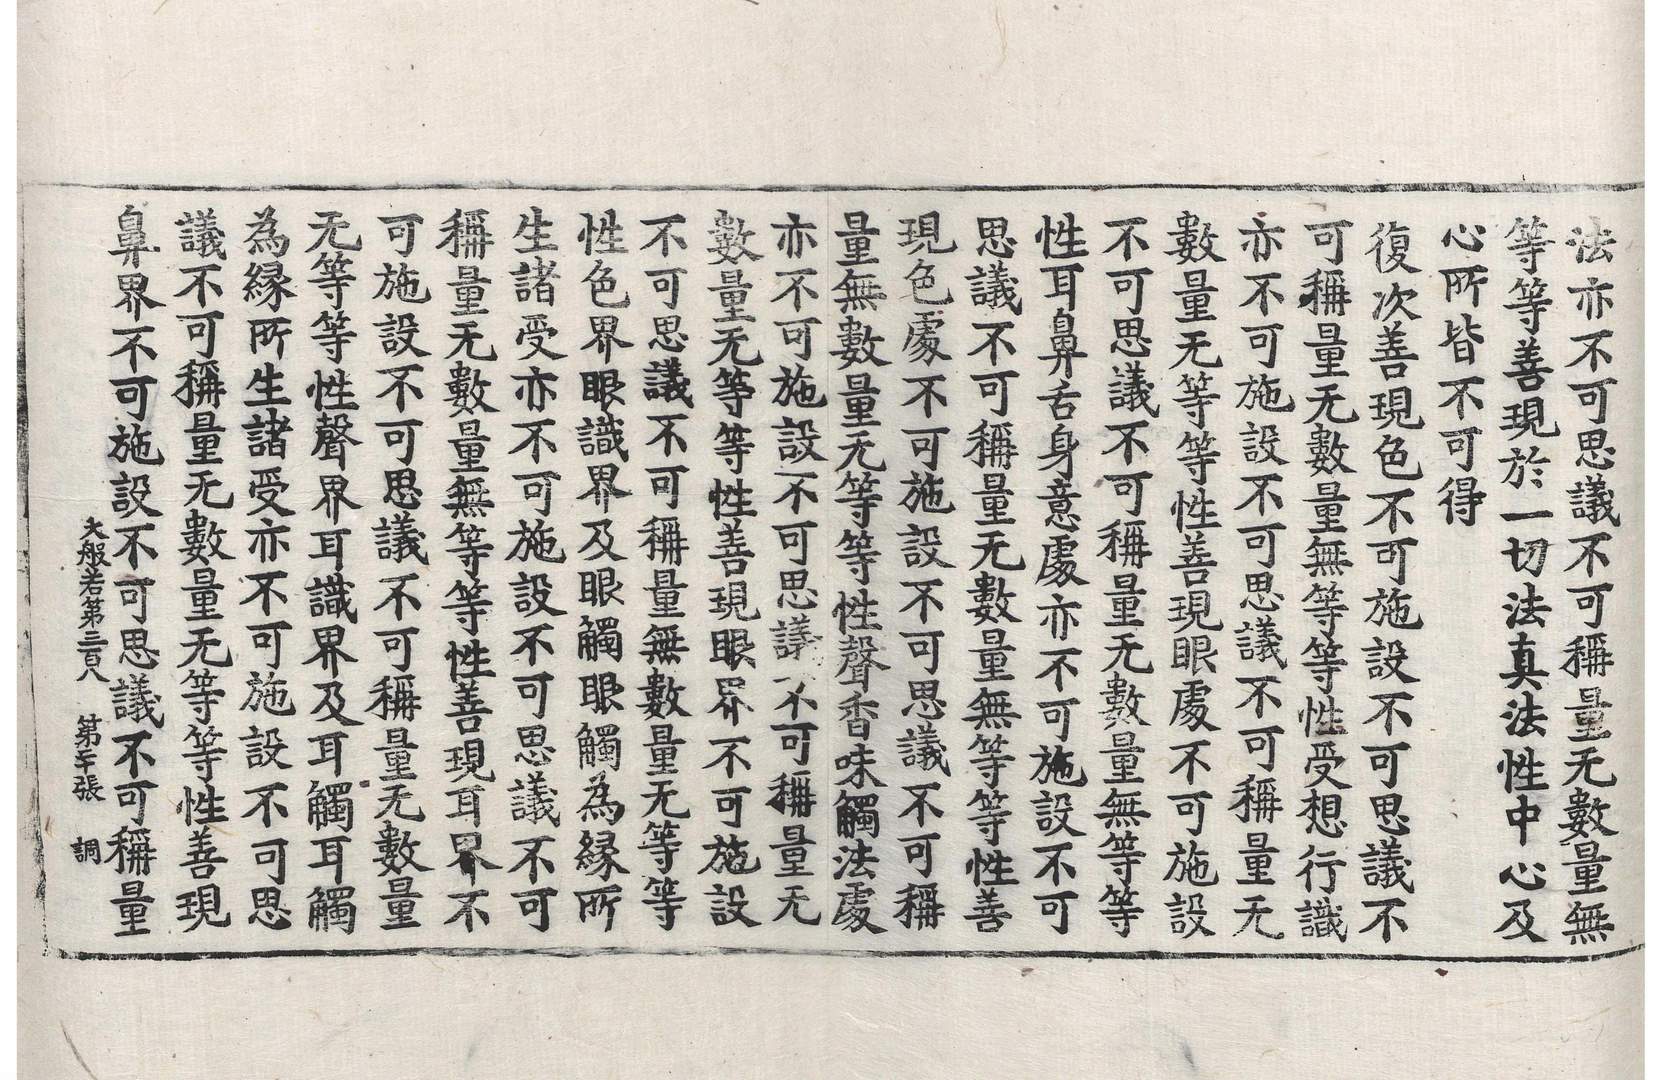 法亦不可思議不可稱量无數量無
等等善現於一切法真法性中心及
心所皆不可得
復次善現色不可施設不可思議不
可稱量无數量無等等性受想行識
亦不可施設不可思議不可稱量无
數量无等等性善現眼處不可施設
不可思議不可稱量无數量無等等
性耳鼻舌身意處亦不可施設不可
思議不可稱量无數量無等等性善
現色處不可施設不可思議不可稱
量無數量无等等性聲香味觸法處
亦不可施設不可思議不可稱量无
數量无等等性善現眼界不可施設
不可思議不可稱量無數量无等等
性色界眼識界及眼觸眼觸為緣所
生諸受亦不可施設不可思議不可
稱量无數量無等等性善現耳界不
可施設不可思議不可稱量无數量
无等等性聲界耳識界及耳觸耳觸
為緣所生諸受亦不可施設不可思
議不可稱量无數量无等等性善現
鼻界不可施設不可思議不可稱量
大般若第三百八 第張 調